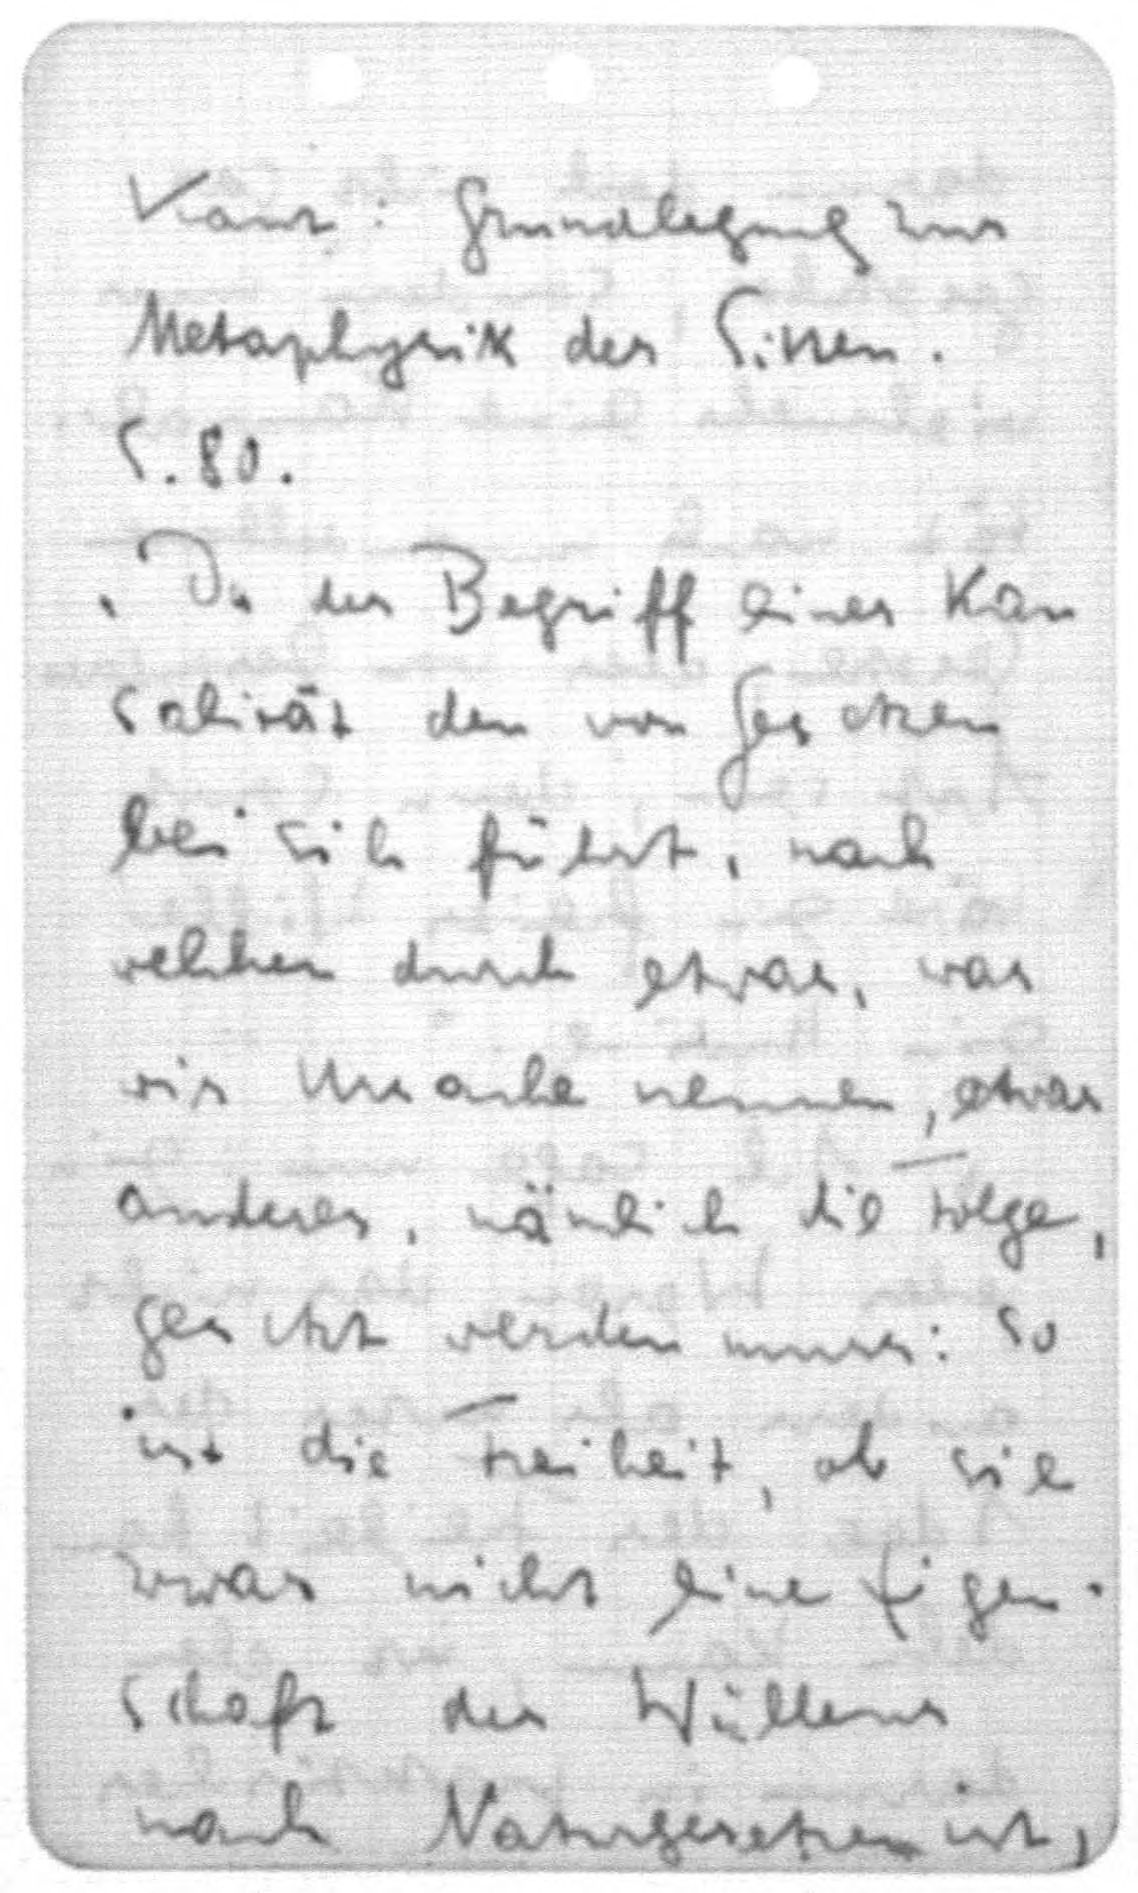 Kant: Grundlegung zur
Metaphysik der Sitten.
S. 80.
„Da der Begriff einer Kau
salität den von Gesetzen
bei sich führt, nach
welchen durch etwas, was
wir Ursache nennen, etwas
anderes, nämlich die Folge,
gesetzt werden muss: so
ist die Freiheit, ob sie
zwar nicht eine Eigen-
schaft des Willens
nach Naturgesetzen ist,